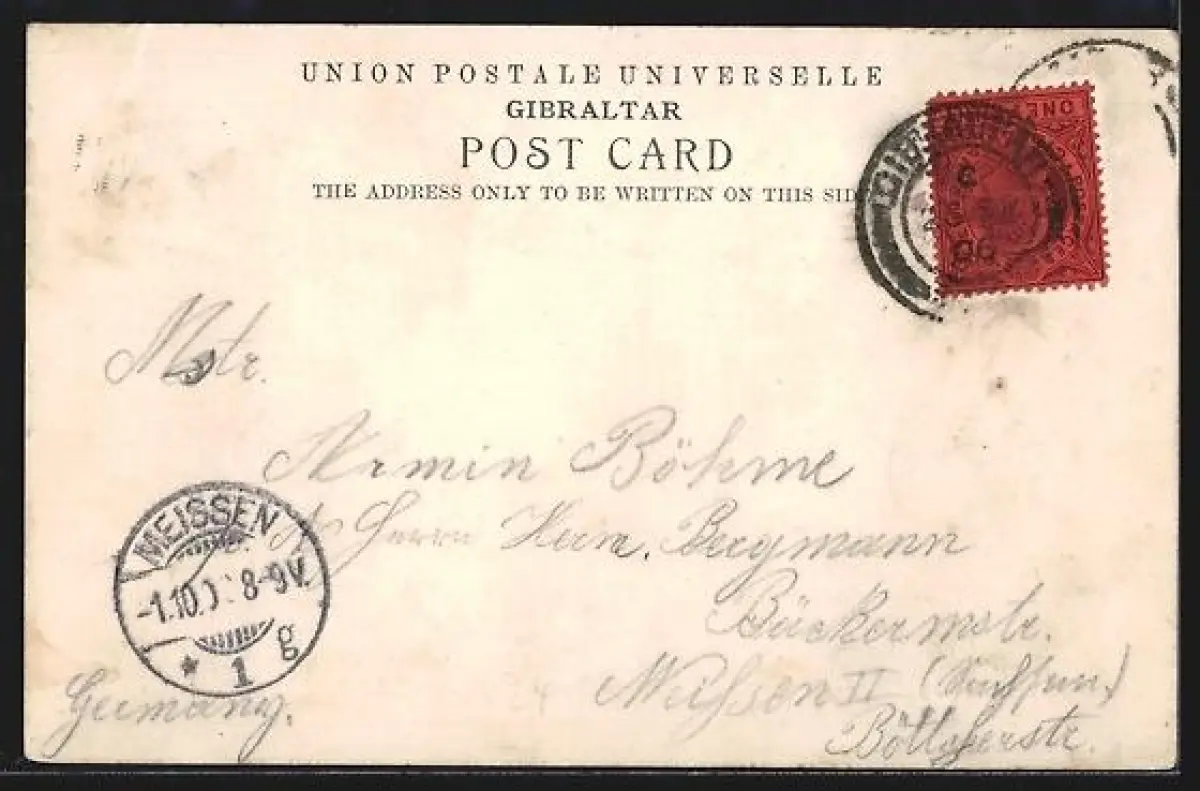 UNION POSTALE UNIVERSELLE
GIBRALTAR
POST CARD
THE ADDRESS ONLY TO BE WRITTEN ON THIS SID
ONE
GIBRALTAR
06
Mstr.
Armin Böhme
Herrn Herm. Bergmann
Bäckermstr.
Meißen II (Sachsen)
Böttgerstr.
Germany.
MEISSEN
-1.10.0 8-9V.
* 1 g